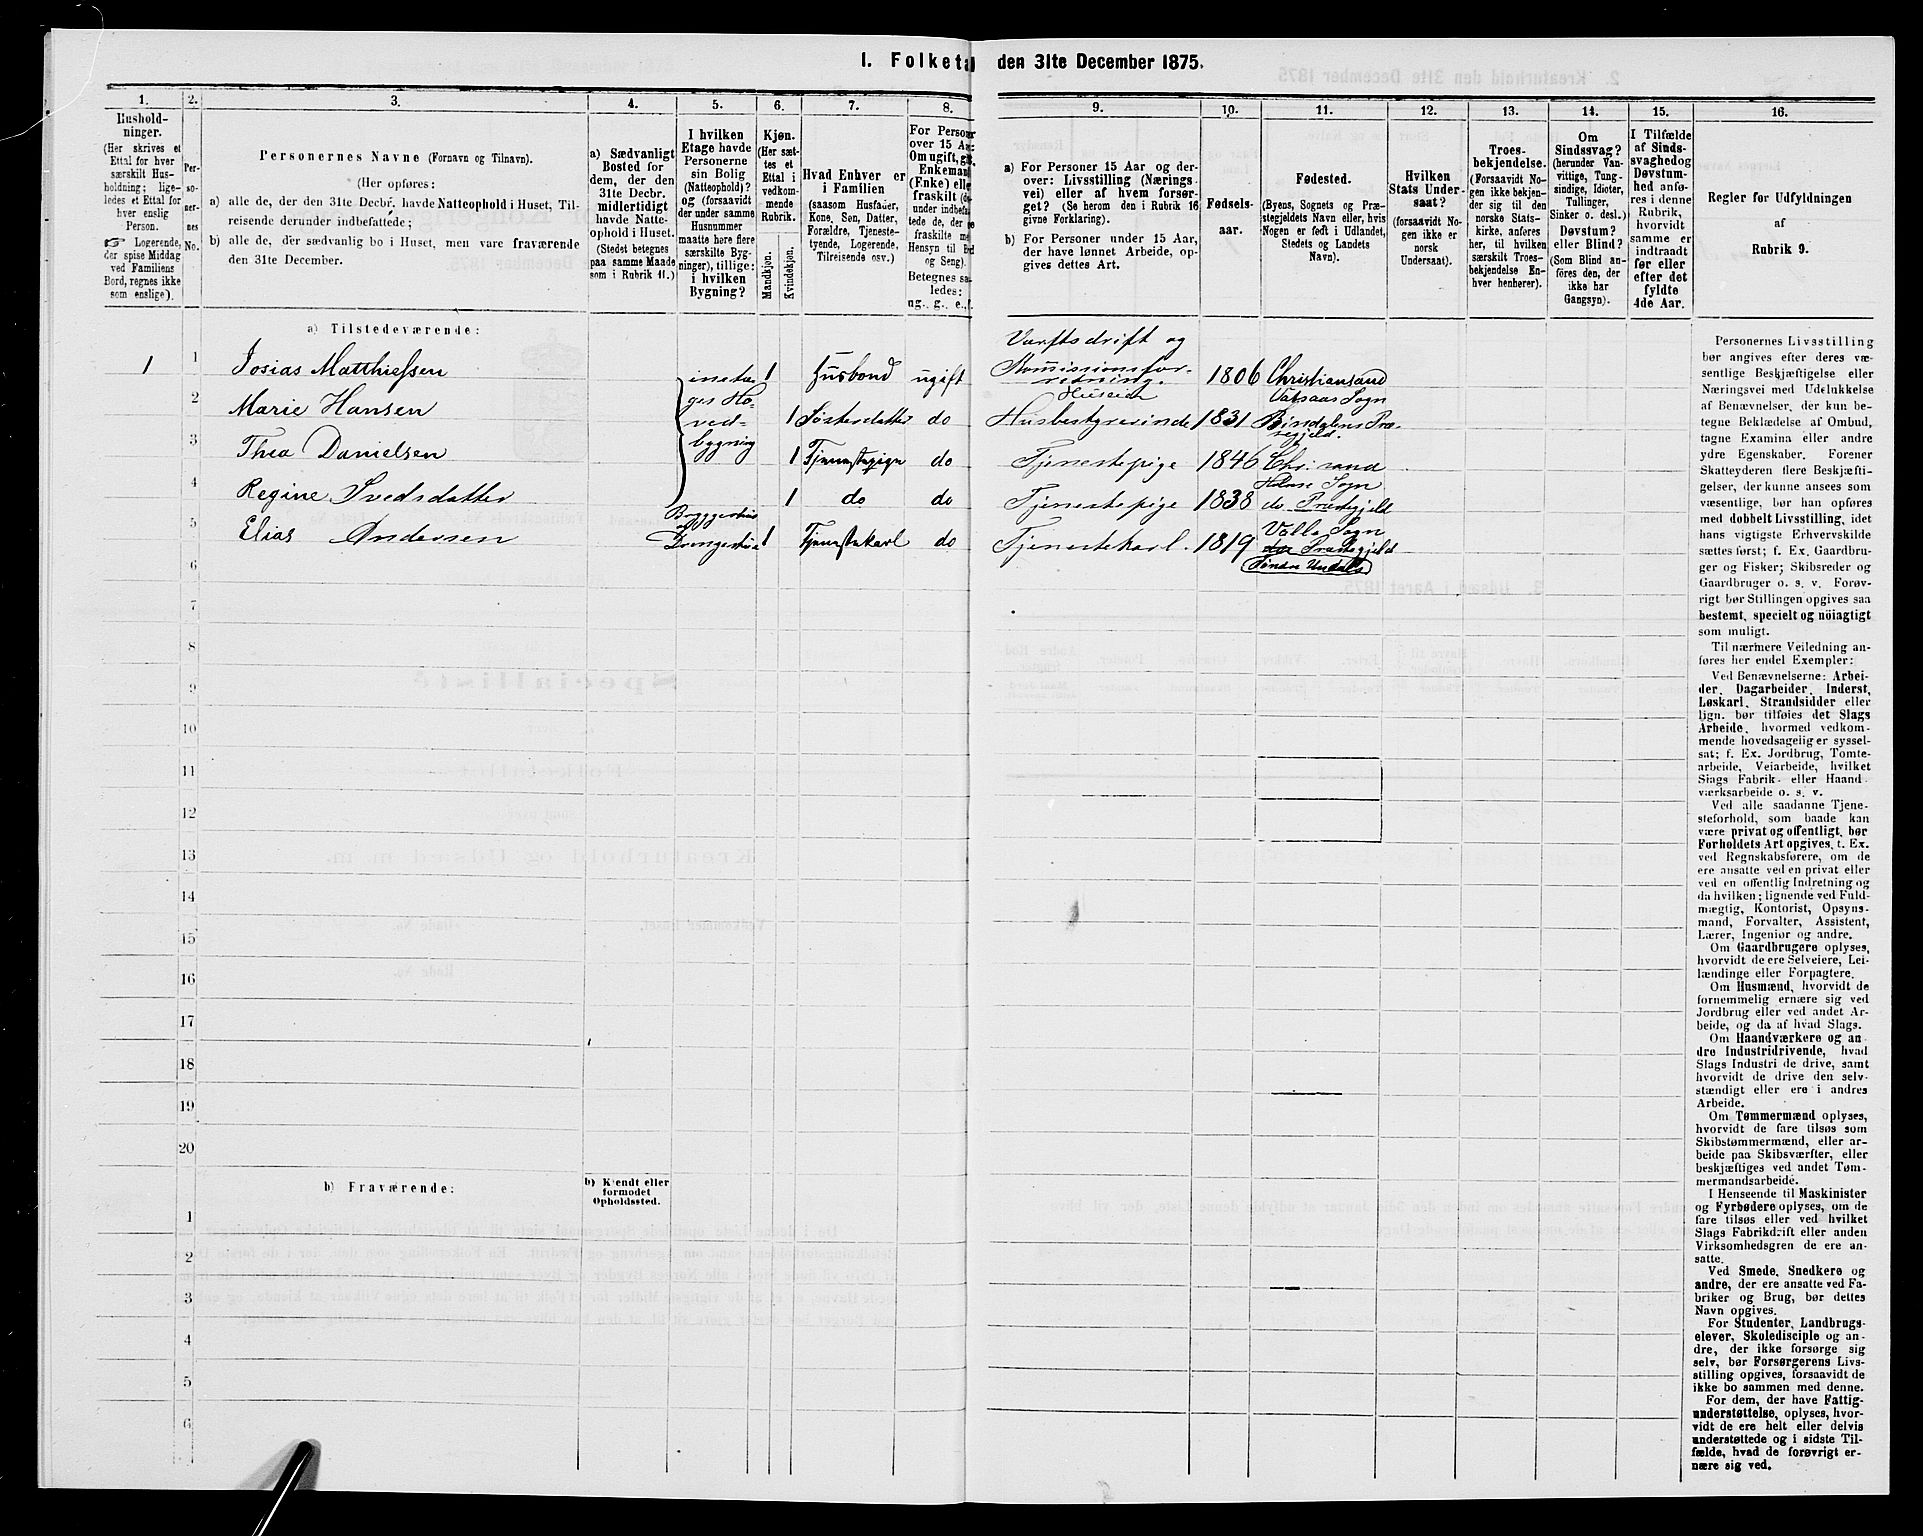 1. Folketa den 31te December 1875.
1. 2. 3. 4. 5. 6. 7. 8. 9. 10. 11. 12. 13. 14. 15. 16.
Hushold-
ninger.
(Her skrives et
Ettal for hver
særskilt Hus-
holdning; lige-
ledes et Ettal for
hver enslig
Person.
☞ Logerende,
der spise Middag
ved Familiens
Bord, regnes ikke
som enslige).
Per-
so-
ner-
nes
No.
Personernes Navne (Fornavn og Tilnavn).
(Her opføres:
a) alle de, der den 31te Decbr. havde Natteophold i Huset, Til-
reisende derunder indbefattede;
b) alle de, der sædvanlig bo i Huset, men vare fraværende
den 31te December.
a) Sædvanligt
Bosted for
dem, der den
31te Decbr.
midlertidigt
havde Natte-
ophold i Huset.
(Stedet betegnes
paa samme Maade
som i Rubrik 11.)
I hvilken
Etage havde
Personerne
sin Bolig
(Natteophold)?
og (forsaavidt
der under samme
Husnummer
maatte høre flere
særskilte Byg-
ninger), tillige:
i hvilken
Bygning?
Kjøn.
(Her sæt-
tes et
Ettal i
vedkom-
mende
Rubrik.
Mandkjøn.
Kvindekjøn.
Hvad Enhver er
i Familien
(saasom Husfader,
Kone, Søn, Datter,
Forældre, Tjeneste-
tyende, Logerende,
Tilreisende osv.)
For Person
over 15 Aa
Om ugift, gi
Enkeman
(Enke) elle
fraskilt (de
under indbefa
tede de, der e
fraskilte me
Hensyn til Bo
og Seng).
Betegnes sa
ledes:
ug., g., e., f.
a) For Personer 15 Aar og der-
over: Livsstilling (Nærings
vei) eller af hvem forsør-
get? (Se herom den i Rubrik 16
givne Forklaring).
b) For Personer under 15 Aar,
der have lønnet Arbeide, op-
gives dettes Art.
Fødsels-
aar.
Fødested.
(Byens, Sognets og Præ-
stegjeldets Navn eller, hvis
Nogen er født i Udlandet,
Stedets og Landets
Navn).
Hvilken
Stats Under-
saat?
(forsaavidt No-
gen ikke er
norsk
Undersaat).
Troes-
bekjendelse.
(Forsaavidt No-
gen ikke bekjen-
der sig til den
norske Stats-
kirke, anføres
her, til hvilken
særskilt Troes-
bekjendelse En-
hver henhører).
Om
Sindssvag?
(herunder Van-
vittige, Tung-
sindige, Idioter,
Tullinger,
Sinker o. desl.)
Døvstum?
eller Blind?
(Som Blind an-
føres den, der
ikke har
Gangsyn).
I Tilfælde
af Sinds-
svaghed og
Døvstum-
hed anfø-
res i denne
Rubrik,
hvorvidt
samme er
indtraadt
før eller
efter det
fyldte
4de Aar.
Regler for Udfyldningen
af
Rubrik 9.
a) Tilstedeværende:
Varftsdrift og
1 1 Josias Matthiessen 1 Husbond ugift Kommissionsfor-
retning. 1806 Christiansand
2 Marie Hansen 1 Søsterdatter do Husbestyrerinde 1831 Bindalens Præ-
stegjeld.
3 Thea Danielsen 1 Tjenestepige do Tjenestepige 1846 Chr.sand
4 Regine Svedsdatter 1 do do Tjenestepige 1838 Sogn
do Præstegjeld
5 Elias Andersen Bryggerhus 1 Tjenestekarl do Tjenestekarl. 1819 Valle Sogn
Præstegjeld
Søndr Undals
6
7
8
9
10
11
12
13
14
15
16
17
18
19
20
b) Fraværende:
b) Kjendt eller
formodet
Opholdssted.
1
2
3
4
5
6
Personernes Livsstilling
bør angives efter deres væ-
sentlige Beskjæftigelse eller
Næringsvei med Udelukkelse
af Benævnelser, der kun be-
tegne Beklædelse af Ombud,
tagne Examina eller andre
ydre Egenskaber. Forener
Skatteyderen flere Beskjæfti-
gelser, der kunne ansees som
væsentlige, bør han opføres
med dobbelt Livsstilling, idet
hans vigtigste Erhvervskilde
sættes først; f. Ex. Gaardbru-
ger og Fisker; Skibsreder og
Gaardbruger o. s. v. Forøv-
rigt bør Stillingen opgives saa
bestemt, specielt og nöiagtigt
som muligt.
Til nærmere Veiledning an-
føres her endel Exempler:
Ved Benævnelserne: Arbei-
der, Dagarbeider, Inderst,
Løskarl, Strandsidder eller
lign. bør tilføies det Slags
Arbeide, hvormed vedkom-
mende hovedsagelig er syssel-
sat; f. Ex. Jordbrug, Tomte-
arbeide, Veiarbeide, hvilket
Slags Fabrik- eller Haand-
værksarbeide o. s. v.
Ved alle saadanne Tjene-
steforhold, som baade kan
være privat og offentligt, bør
Forholdets Art opgives, t. Ex.
ved Regnskabsførere, om de
ere ansatte ved en privat eller
ved en offentlig Indretning og
da hvilken; lignende ved Fuld-
mægtig, Kontorist, Opsyns-
mand, Forvalter, Assistent,
Lærer, Ingeniør og andre.
Om Gaardbrugere oplyses,
hvorvidt de ere Selveiere, Lei-
lændinge eller Forpagtere.
Om Husmænd, hvorvidt de
fornemmelig ernære sig ved
Jordbrug eller ved andet Ar-
beide, og da af hvad Slags.
Om Haandværkere og an
dre Industridrivende, hvad
Slags Industri de drive, samt
hvorvidt de drive den selv-
stændigt eller ere i andres
Arbeide.
Om Tømmermænd oplyses,
hvorvidt de fare tilsøs som
Skibstømmermænd, eller ar-
beide paa Skibsværfter, eller
beskjæftiges ved andet Tøm-
mermandsarbeide.
I Henseende til Maskinister
og Fyrbødere oplyses, om de
fare tilsøs eller ved hvilket
Slags Fabrikdrift eller anden
Virksomhedsgren de ere an-
satte.
Ved Smede, Snedkere og
andre, der ere ansatte ved Fa-
briker og Brug, bør dettes
Navn opgives.
For Studenter, Landbrugs-
elever, Skoledisciple og an-
dre, der ikke forsørge sig
selv, bør Forsørgerens Livs-
stilling opgives, forsaavidt de
ikke bo sammen med denne.
For dem, der have Fattig-
understøttelse, oplyses, hvor-
vidt de ere helt eller delvis
understøttede og i sidste Til-
fælde, hvad de forøvrigt er-
nære sig ved.